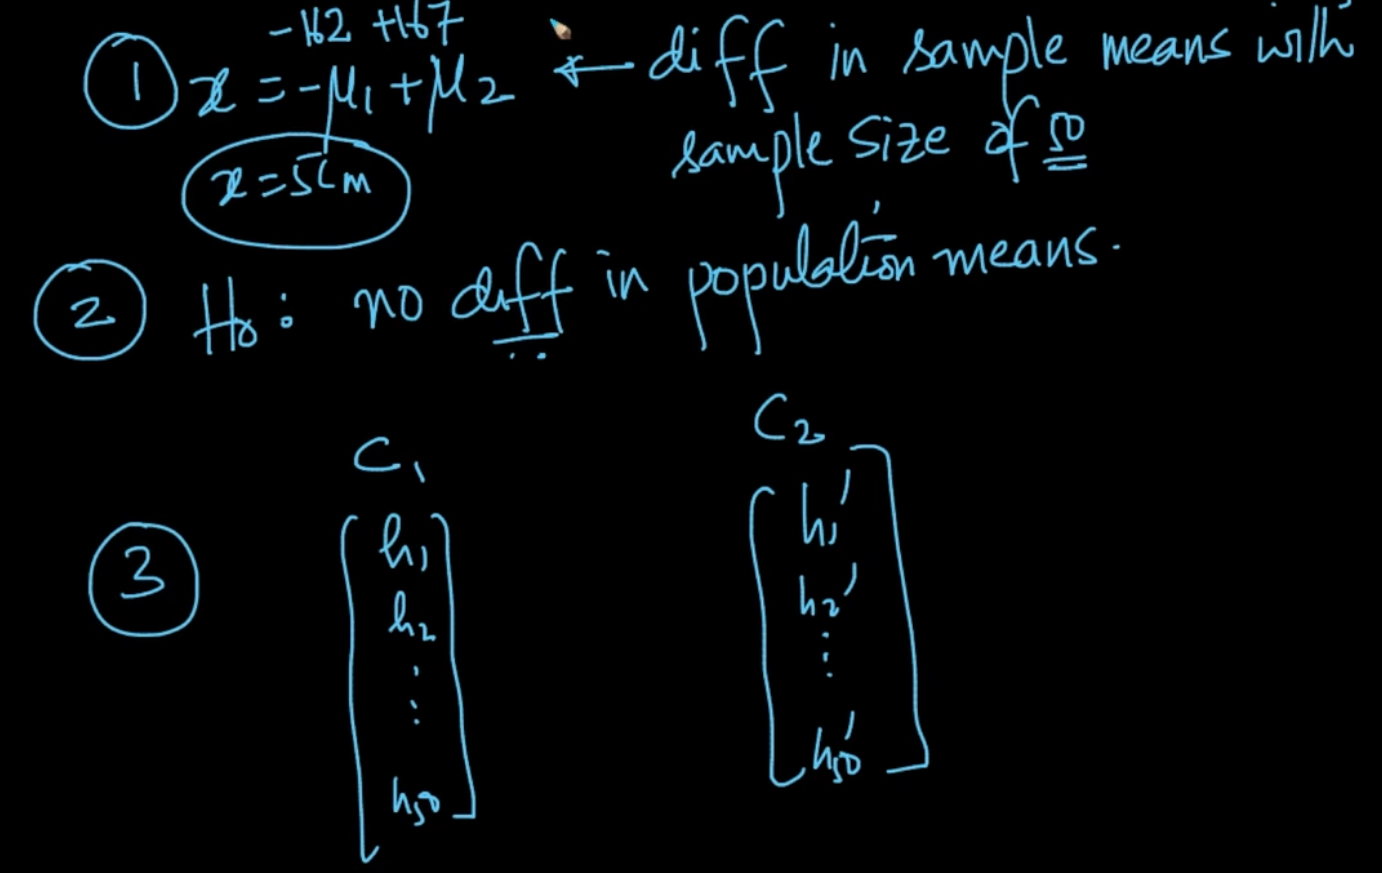 -162 +167
① x = -μ₁ + μ₂ ← diff in sample means with
sample size of 50
x = 5cm
② H₀: no diff in population means.
C₁ C₂
③
h₁ h₁'
h₂ h₂'
⋮ ⋮
h₅₀ h₅₀'